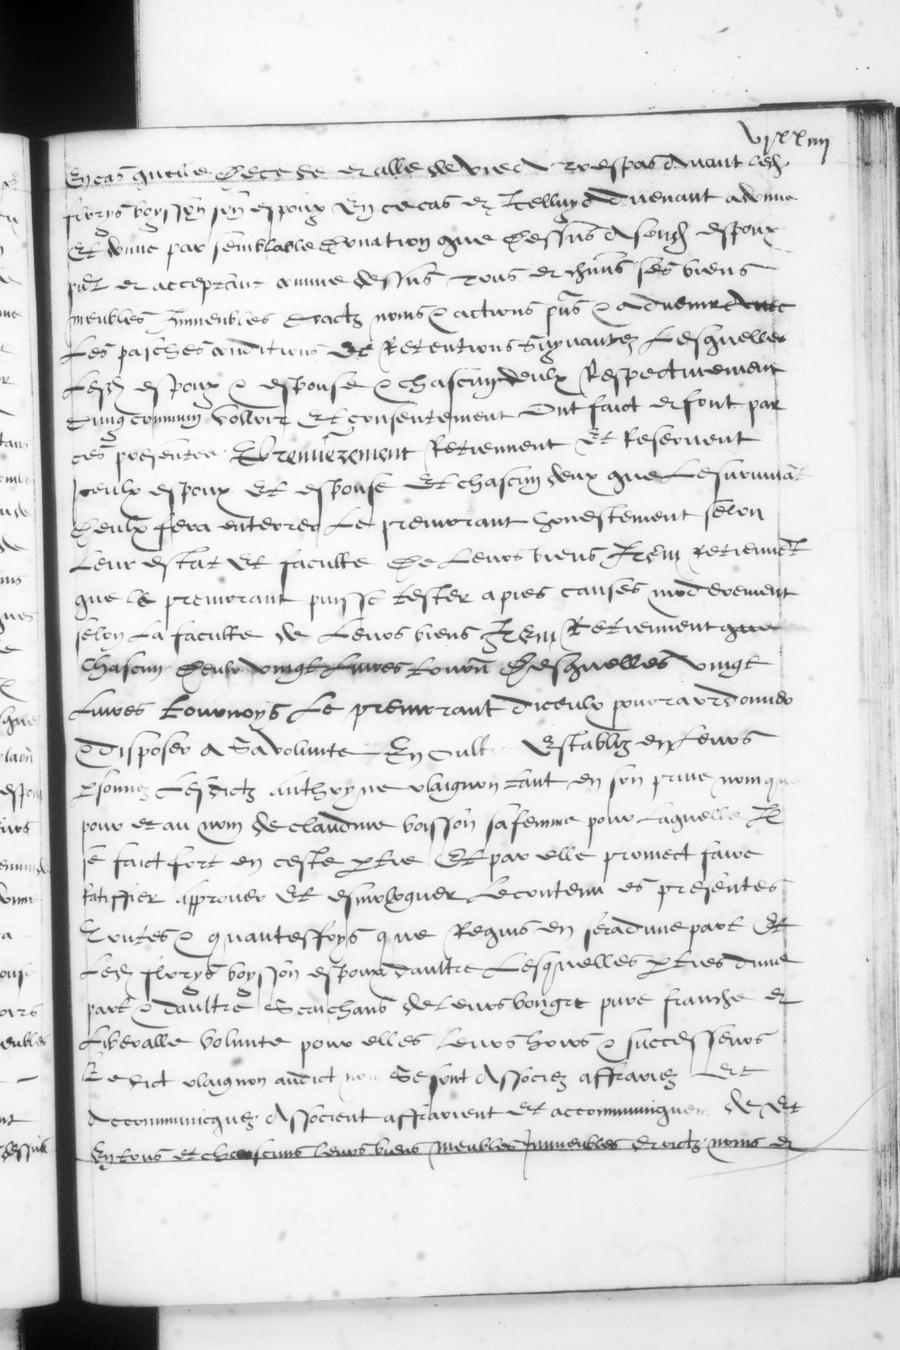 vixxiiii
En cas quelle decede et alle de vie a trespas avant led.
florys boysson son espoux En ce cas et Icelluy advenant a donne
Et donne par semblable donation que dessus a sond. espoux
pnt et acceptant comme dessus tous et chuns ses biens
meubles Immeubles droictz noms & actions pns & advenir avec
Les pasches conditions Et Retentions suyvantz Lesquelles
Lesd. espoux & espouse & chascun deulx Respectivement
dung commun volloir Et consentement Ont faict et font par
ces presentes Et premierement Retiennent Et Reservent
Iceulx espoux Et espouse Et chascun deux que Le survivat
deulx fera enterrer Le premorant honestement selon
Leur estat Et faculte de Leurs biens Item Retiennet
que le premorant puysse tester a pies causes moderement
selon La faculte de Leurs biens Item Retiennent
chascun deulx vingt Livres tourn Desquelles vingt
Livres tournoys Le premorant diceulx pourra ordonner
& disposer a sa volunte En oult Establiz en Leurs
psonnes Lesdictz anthoyne vlaignon tant en son prive nom que
pour et au nom de claudine boisson sa femme pour Laquelle Il
se faict fort en ceste ptie Et par elle promect faire
ratiffier approuver Et esmologuer Le contenu es presentes
Toutes & quanteffoys que Requis en sera dune part Et
Led. florys boysson espoux daultre Lesquelles pties dune
part & daultre Scaichans de Leurs bon gre pure franche et
Liberalle volunte pour elles Leurs hoirs & successeurs
Le dict vlaignon audict nom Se sont Associez affrairez Et
Accommunicquez Associent affrairent Et accommuniquent de Et
En tous et chascuns leurs biens meubles Immeubles droictz noms et